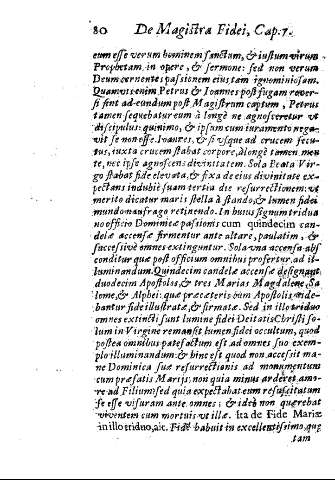 80 De Magistra Fidei, Cap. 7.
eum esse verum hominem sanctum, & iustum virum
Prophetam in opere, & sermone: sed non verum
Deum cernente passionem eius tam ignominiosam.
Quamuis enim Petrus & Ioannes post fugam rever-
si sint ad eundum post Magistrum captum, Petrus
tamen sequebatur eum à longè ne agnosceretur vt
discipulus: quinimo, & ipsum cum iuramento nega-
vit se nosse. Ioannes, & si vsque ad crucem secu-
tus, iuxta crucem stabat corpore, à longè tamen men-
te, nec ipse agnoscens divinitatem. Sola Beata Vir-
go stabat fide elevata, & fixa de eius divinitate ex-
pectans indubiè suam tertia die resurrectionem: vt
merito dicatur maris stella à stando, & lumen fidei
mundo naufrago retinendo. In huius signum tridua
no officio Dominicæ passionis cum quindecim can-
delæ accensæ firmentur ante altare, paulatim, &
successivè omnes extinguntur. Sola vna accensa abs
conditur quæ post officium omnibus profertur, ad il-
luminandum. Quindecim candelæ accensæ designant
duodecim Apostolos, & tres Marias Magdalene, Sa
lome, & Alphei: quæ præcæteris cum Apostolis vide-
bantur fide illustratæ, & firmatæ. Sed in illo triduo
omnes extincti sunt lumine fidei Deitatis Christi so-
lum in Virgine remansit lumen fidei occultum, quod
postea omnibus patefactum est ad omnes suo exem-
plo illuminandum. & hinc est quod non accessit ma-
ne Dominica suæ resurrectionis ad monumentum
cum præfatis Marijs: non quia minus arderet amo-
re ad Filium: sed quia expectabat eum resuscitatum
se esse visuram ante omnes: & ideò non quærebat
viventem cum mortuis vt illæ. Ista de Fide Mariæ
in illo triduo, ait. Fidē habuit in excellentissimo, que
tam